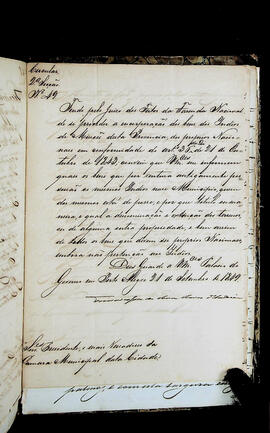 Circular
2ª Secção
Nº 49
Tendo pelo Juizo dos Feitos da Fazenda Nacional
de se proceder a incorporação dos bens dos Indios
de Missões desta Provincia, aos proprios Nacio
naes em conformidade do artº 3º de 21 de Ou
tubro de 1843, convem que Vmces me informem
quaes os bens que por ventura antigamente per
tencerão a mesmos Indios nesse Municipio, quem
dos mesmos está de posse, e por que titulo ou ma
neira, e qual a denominação e extenção dos terrenos
ou de alguma outra propriedade, e bem assim
de todos os bens que devem ser proprios Nacionaes
embora não pertenção aos Indios.
Deus Guarde a Vmces Palacio do
Governo em Porto Alegre 21 de Setembro de 1849
Snr. Presidente, e mais Vereadores da
Camara Municipal desta Cidade